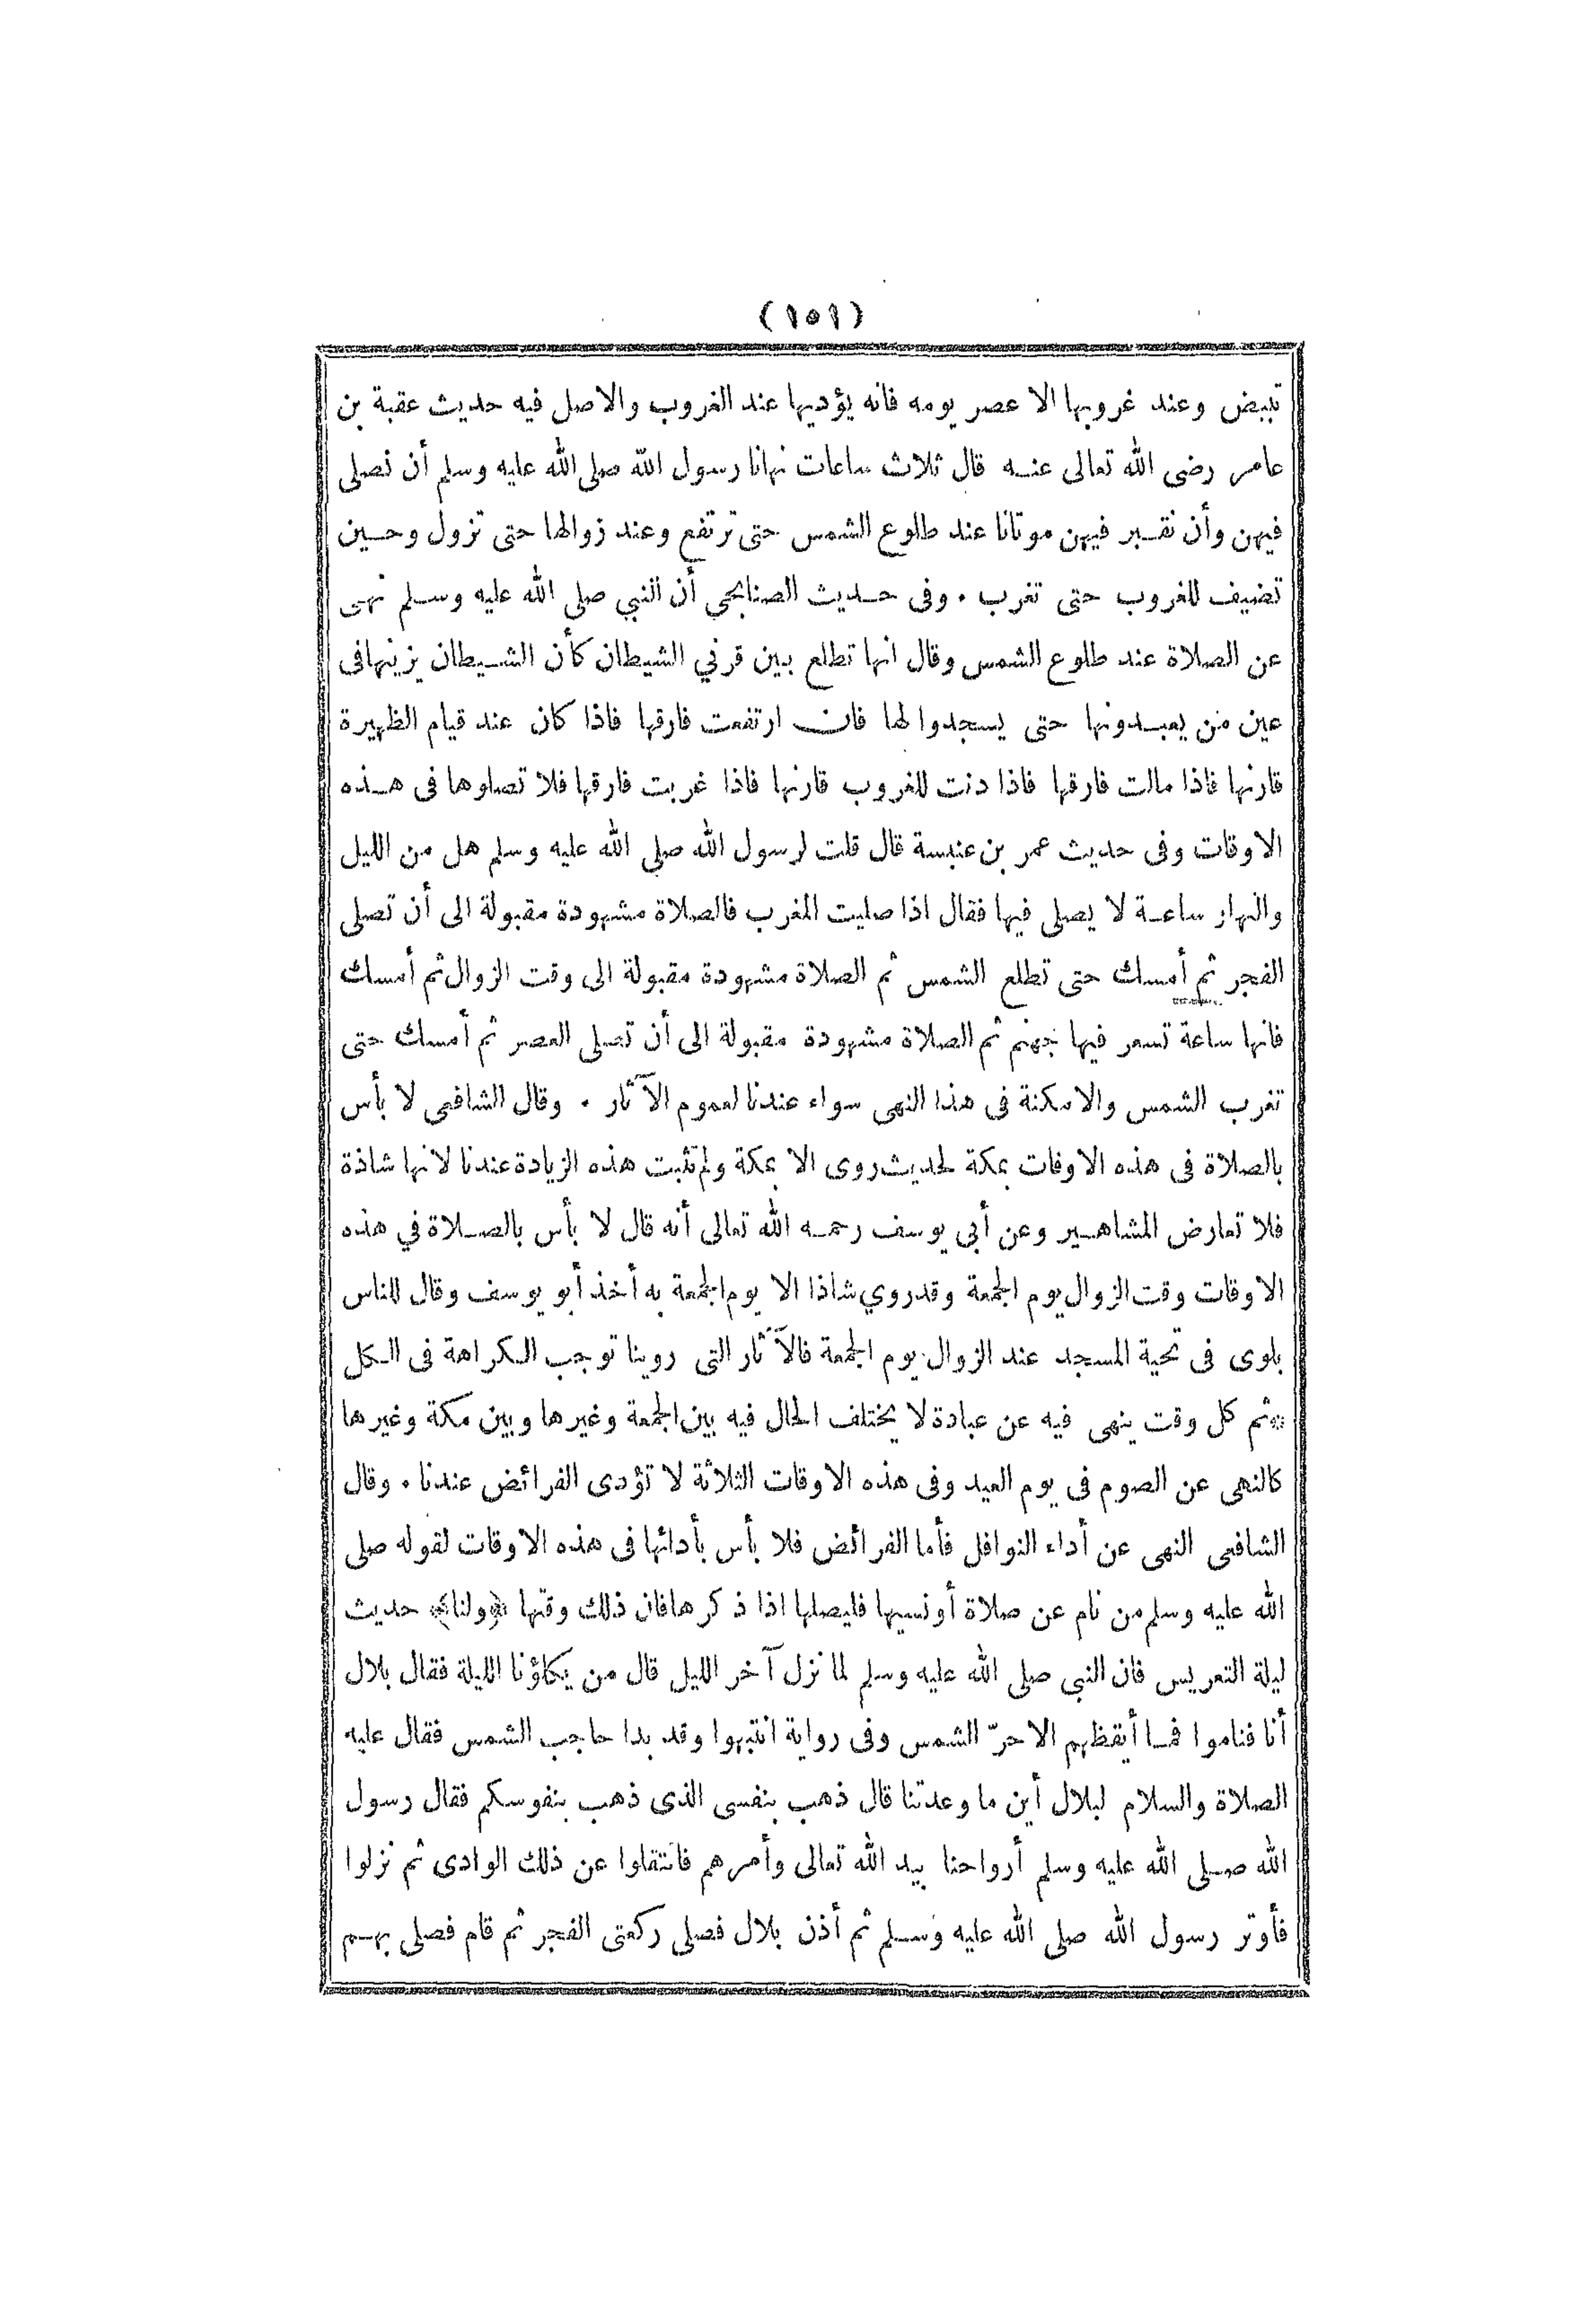 (١٥١)
تبيض وعند غروبها الا عصر يومه فانه يؤديها عند الغروب والاصل فيه حديث عقبة بن
عامر رضى الله تعالى عنه قال ثلاث ساعات نهانا رسول الله صلى الله عليه وسلم أن نصلى
فيهن وأن نقبر فيهن موتانا عند طلوع الشمس حتى ترتفع وعند زوالها حتى تزول وحين
تضيف للغروب حتى تغرب . وفى حديث الصنابحي أن النبي صلى الله عليه وسلم نهى
عن الصلاة عند طلوع الشمس وقال انها تطلع بين قرني الشيطان كأن الشيطان يزينها فى
عين من يعبدونها حتى يسجدوا لها فان ارتفعت فارقها فاذا كان عند قيام الظهيرة
قارنها فاذا مالت فارقها فاذا دنت للغروب قارنها فاذا غربت فارقها فلا تصلوها فى هذه
الاوقات وفى حديث عمر بن عنبسة قال قلت لرسول الله صلى الله عليه وسلم هل من الليل
والنهار ساعة لا يصلى فيها فقال اذا صليت المغرب فالصلاة مشهودة مقبولة الى أن تصلى
الفجر ثم أمسك حتى تطلع الشمس ثم الصلاة مشهودة مقبولة الى وقت الزوال ثم أمسك
فانها ساعة تسعر فيها جهنم ثم الصلاة مشهودة مقبولة الى أن تصلى العصر ثم أمسك حتى
تغرب الشمس والامكنة فى هذا النهى سواء عندنا لعموم الآثار . وقال الشافعى لا بأس
بالصلاة فى هذه الاوقات بمكة لحديث روى الا بمكة ولم تثبت هذه الزيادة عندنا لانها شاذة
فلا تعارض المشاهير وعن أبى يوسف رحمه الله تعالى أنه قال لا بأس بالصلاة في هذه
الاوقات وقت الزوال يوم الجمعة وقد روي شاذا الا يوم الجمعة به أخذ أبو يوسف وقال للناس
بلوى فى تحية المسجد عند الزوال يوم الجمعة فالآثار التى روينا توجب الكراهة فى الكل
* ثم كل وقت ينهى فيه عن عبادة لا يختلف الحال فيه بين الجمعة وغيرها وبين مكة وغيرها
كالنهى عن الصوم فى يوم العيد وفى هذه الاوقات الثلاثة لا تؤدى الفرائض عندنا . وقال
الشافعى النهى عن أداء النوافل فأما الفرائض فلا بأس بأدائها فى هذه الاوقات لقوله صلى
الله عليه وسلم من نام عن صلاة أو نسيها فليصلها اذا ذكرها فان ذلك وقتها ﴿ولنا﴾ حديث
ليلة التعريس فان النبى صلى الله عليه وسلم لما نزل آخر الليل قال من يكلؤنا الليلة فقال بلال
أنا فناموا فما أيقظهم الا حرّ الشمس وفى رواية انتبهوا وقد بدا حاجب الشمس فقال عليه
الصلاة والسلام لبلال أين ما وعدتنا قال ذهب بنفسى الذى ذهب بنفوسكم فقال رسول
الله صلى الله عليه وسلم أرواحنا بيد الله تعالى وأمرهم فانتقلوا عن ذلك الوادى ثم نزلوا
فأوتر رسول الله صلى الله عليه وسلم ثم أذن بلال فصلى ركعتى الفجر ثم قام فصلى بهم